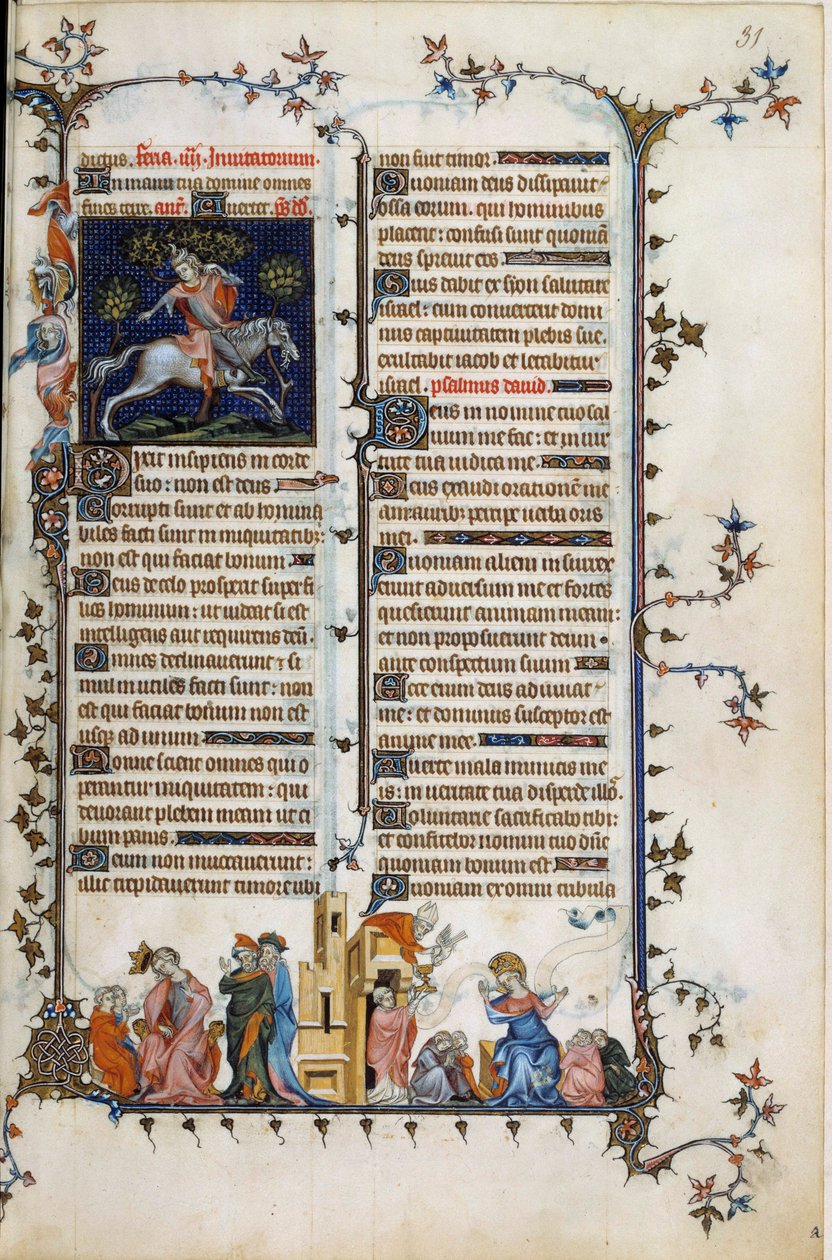 31
dictus. feria .iiij. Inuitatorium.
In manu tua domine omnes
fines terre. an͠t. Auertet. ps͠ dd͠.
Dixit insipiens in corde
suo: non est deus.
Corrupti sunt et ab homina
biles facti sunt in iniquitatib;:
non est qui faciat bonum.
Deus de celo prospexit super fi
lios hominum: ut uideat si est
intelligens aut requirens deū.
Omnes declinauerunt si
mul inutiles facti sunt: non
est qui faciat bonum non est
usq; ad unum.
Nonne scient omnes qui o
perantur iniquitatem: qui
deuorant plebem meam ut ci
bum panis.
Deum non inuocauerunt:
illic trepidauerunt timore ubi
non fuit timor.
Quoniam deus dissipauit
ossa eorum. qui hominibus
placent: confusi sunt quoniā
deus spreuit eos.
Quis dabit ex syon salutare
israel: cum conuerterit domi
nus captiuitatem plebis sue.
exultabit iacob et letabitur
israel. psalmus dauid.
Deus in nomine tuo sal
uum me fac: et in uir
tute tua iudica me.
Deus exaudi orationē me
am auribz percipe uerba oris
mei.
Quoniam alieni insurrex
erunt aduersum me et fortes
quesierunt animam meam:
et non proposuerunt deum
ante conspectum suum
Ecce enim deus adiuuat
me: et dominus susceptor est
anime mee.
Auerte mala inimicis me
is: in ueritate tua disperde illos.
Uoluntarie sacrificabo tibi:
et confitebor nomini tuo dn͠e
quoniam bonum est
Quoniam ex omni tribula